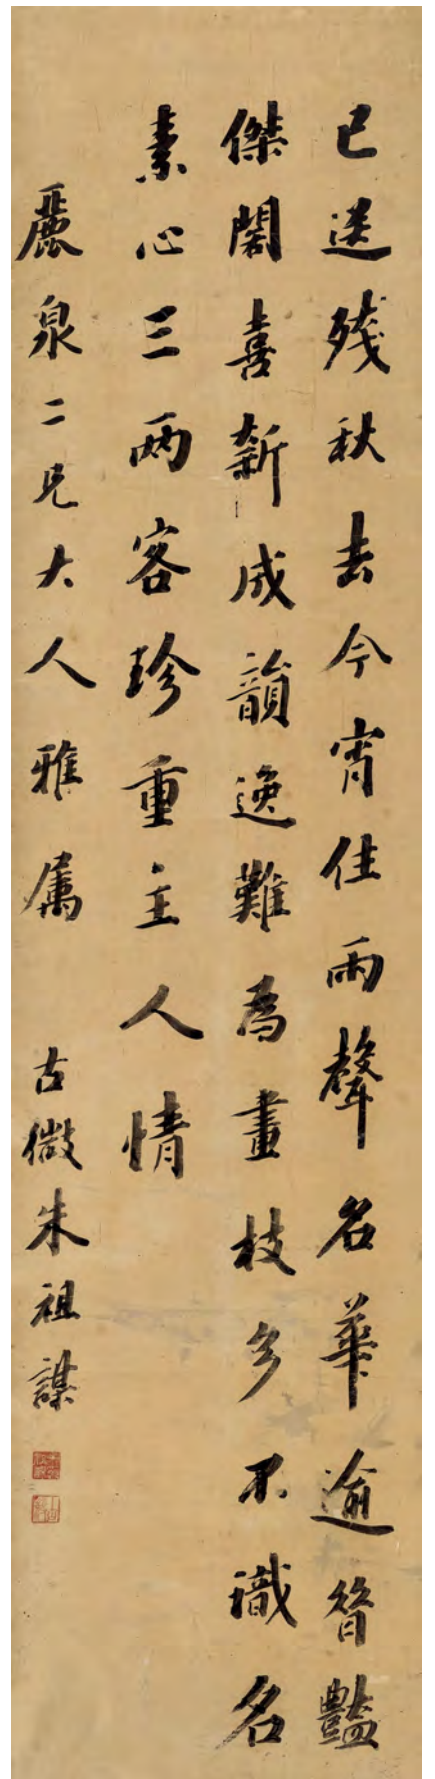 已送殘秋去今宵住雨聲名華逾昔豔
傑閣喜新成韻逸難為畫枝多不識名
素心三兩客珍重主人情
麗泉二兄大人雅属
古微朱祖謀